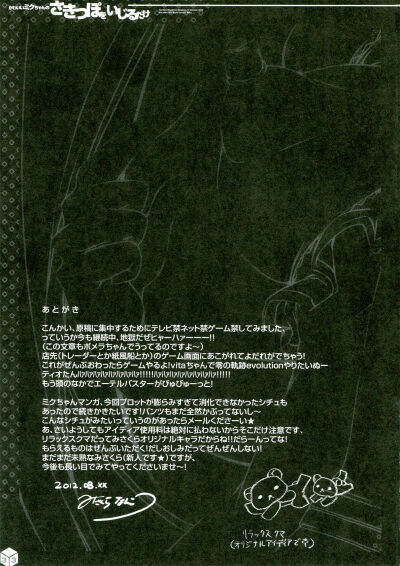 かわいいミクちゃんの
さきっぽをいじるだけ
あとがき
こんかい、原稿に集中するためにテレビ禁ネット禁ゲーム禁してみました、
っていうか今も継続中、地獄だぜヒャーハァーーー!!
(この文章もポメラちゃんでうってるのですよ〜)
店先(トレーダーとか紙風船とか)のゲーム画面にあこがれてよだれがでちゃう!
これがぜんぶおわったらゲームやるよ!vitaちゃんで零の軌跡evolutionやりたいなー
もう頭のなかでエーテルバスターがびゅびゅーっと!
ミクちゃんマンガ、今回プロットが膨らみすぎて消化できなかったシチュも
あったので続きかきたいです!パンツもまだ全然かぶってないし〜
こんなシチュがみたいっていうのがあったらメールくださーい★
あ、さいようしてもアイディア使用料は絶対に払わないからそこだけ注意です、
リラックスクマだってみさくらオリジナルキャラだからね!!だらーんってな!
もらえるものはぜんぶいただくだしおしみだってぜんぜんしない!
まだまだ未熟なみさくら(新人です★)ですが、
今後も長い目でみてやってくださいませ〜!
2012.08.XX
みさくらなんこつ
リラックスクマ
(オリジナルアイディアです)